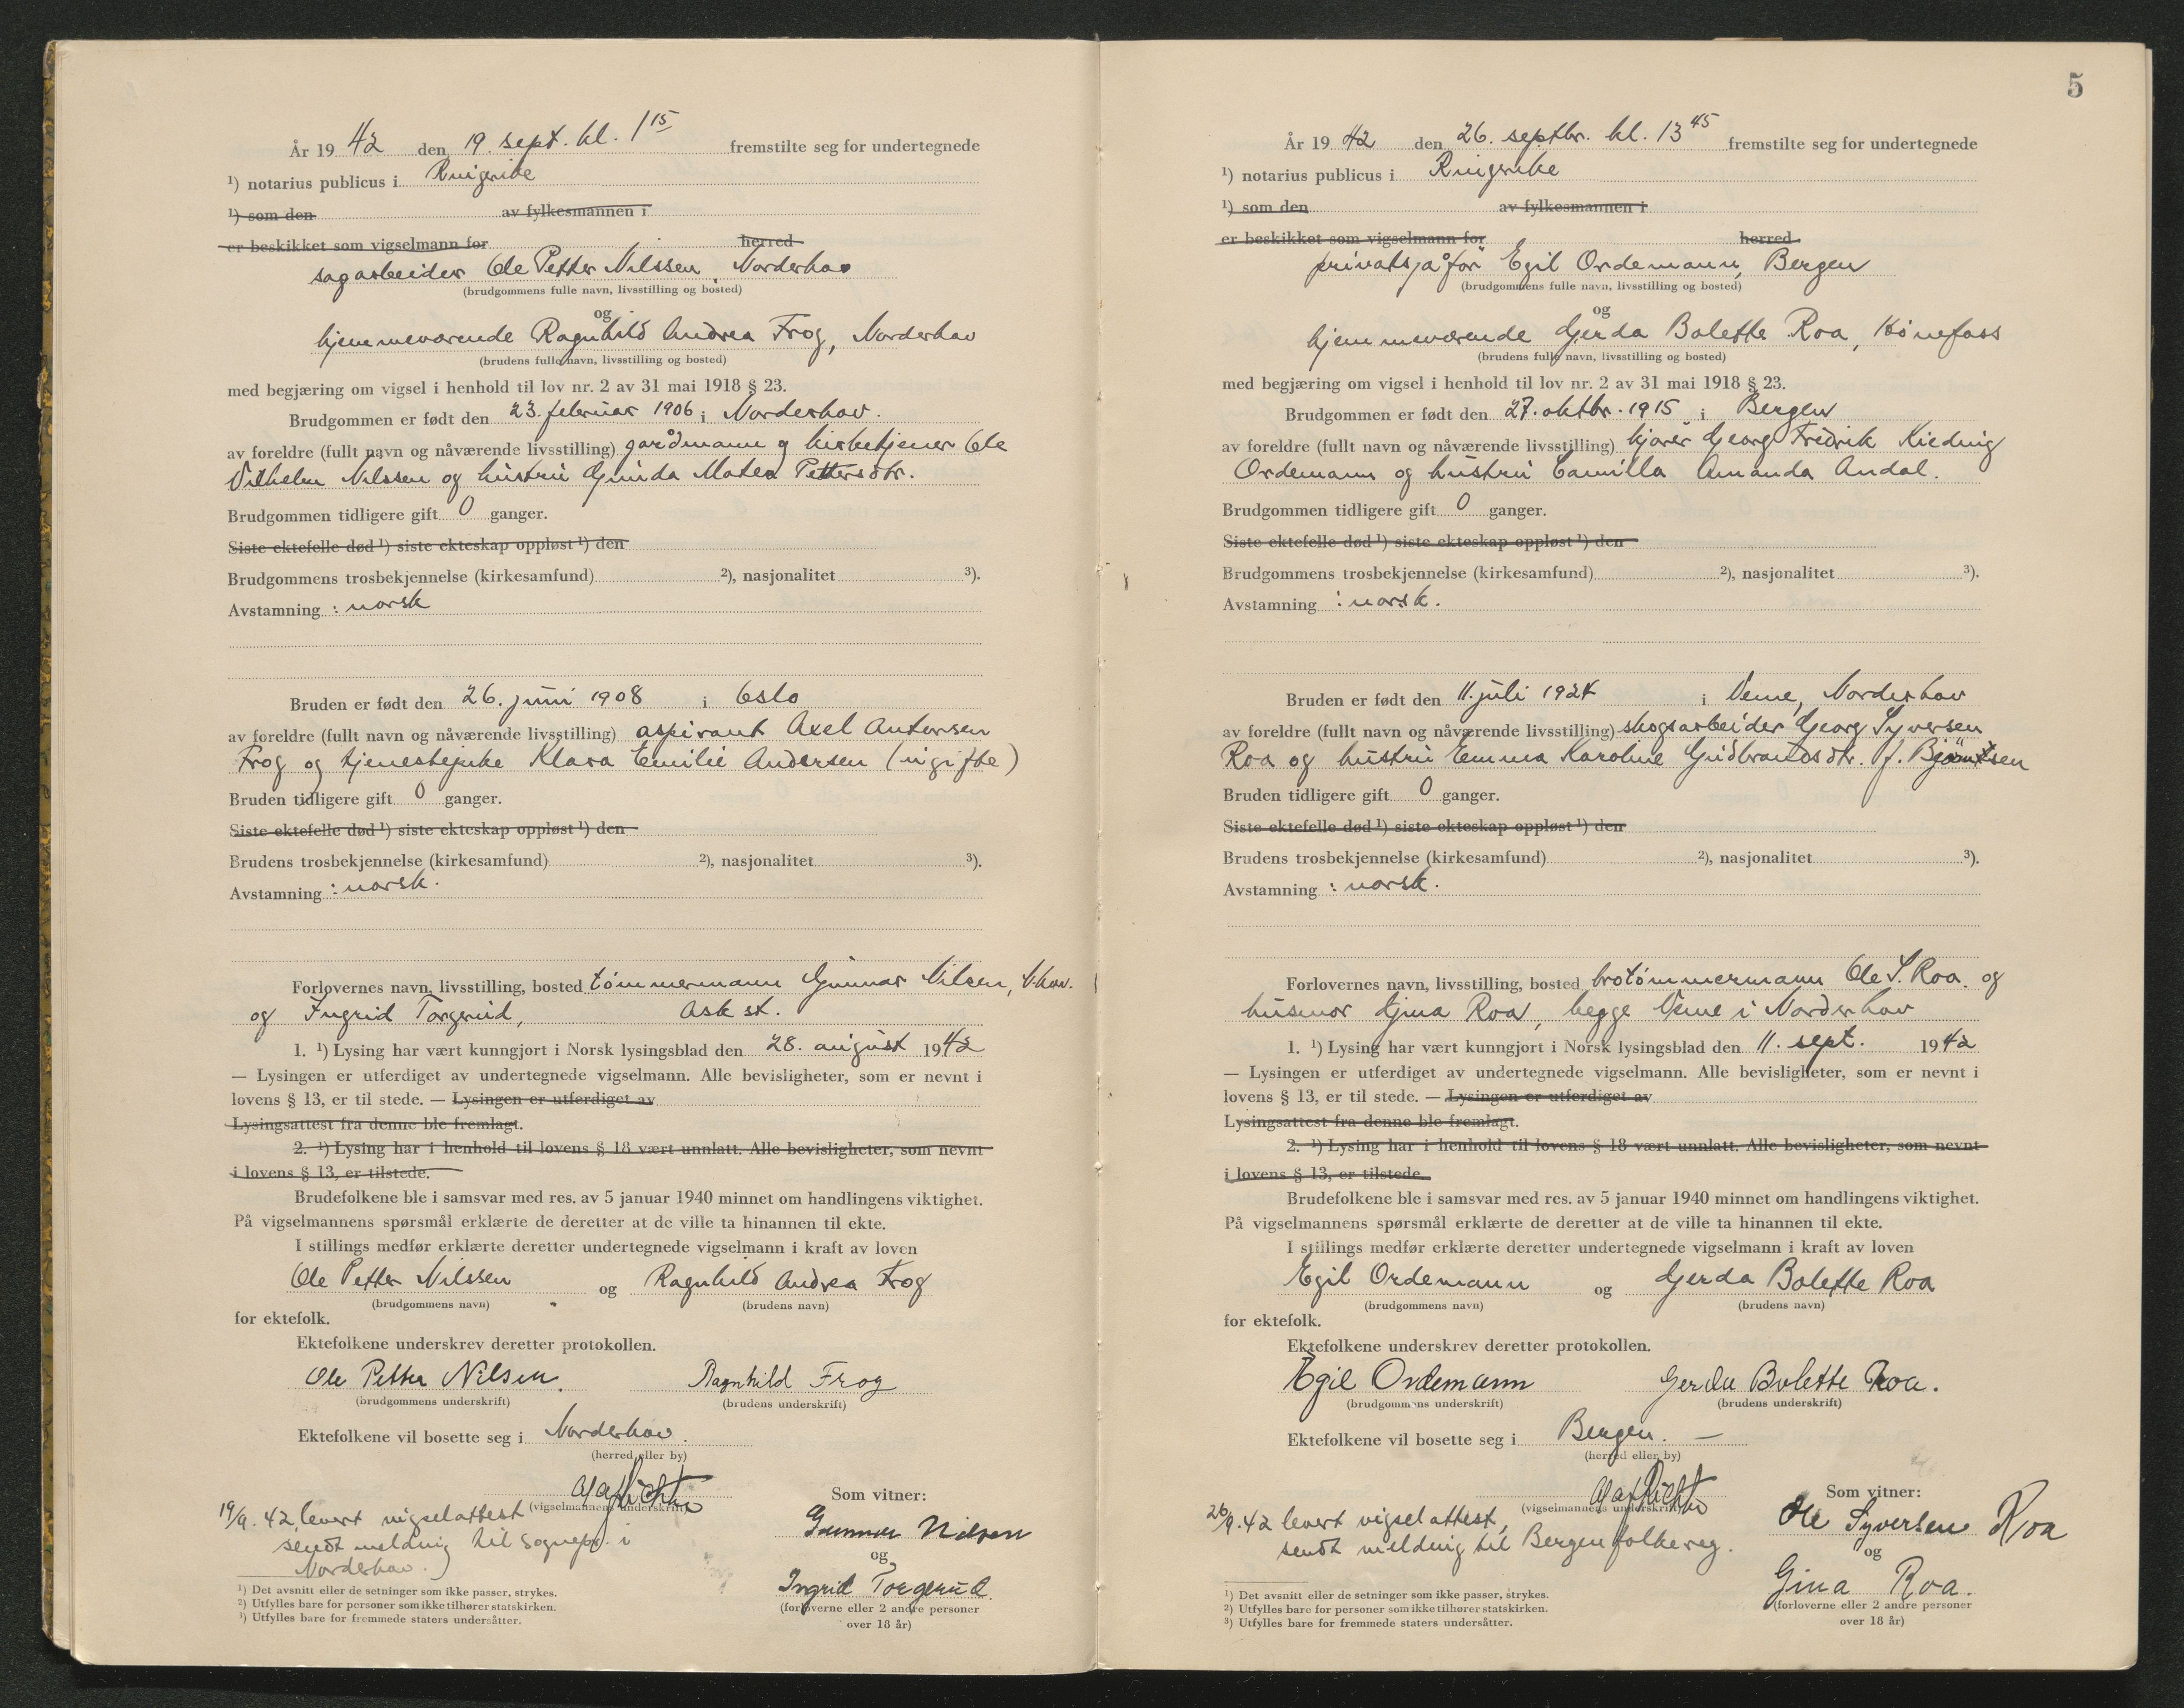 År 19 42 den 19. sept. kl. 1 15 fremstilte seg for undertegnede
¹) notarius publicus i Ringerike
¹) som den av fylkesmannen i
er beskikket som vigselmann for herred
sagarbeider Ole Petter Nilssen, Norderhov
(brudgommens fulle navn, livsstilling og bosted)
og
hjemmeværende Ragnhild Andrea Frog, Norderhov
(brudens fulle navn, livsstilling og bosted)
med begjæring om vigsel i henhold til lov nr. 2 av 31 mai 1918 § 23.
Brudgommen er født den 23. februar 1906 i Norderhov.
av foreldre (fullt navn og nåværende livsstilling) gårdmann og kirketjener Ole
Vilhelm Nilssen og hustru Gunda Matea Pettersdtr.
Brudgommen tidligere gift 0 ganger.
Siste ektefelle død ¹) siste ekteskap oppløst ¹) den
Brudgommens trosbekjennelse (kirkesamfund) ²), nasjonalitet ³).
Avstamning : norsk
Bruden er født den 26. juni 1908 i Oslo
av foreldre (fullt navn og nåværende livsstilling) aspirant Axel Antonsen
Frog og tjenestepike Klara Emilie Andersen (ugifte)
Bruden tidligere gift 0 ganger.
Siste ektefelle død ¹) siste ekteskap oppløst ¹) den
Brudens trosbekjennelse (kirkesamfund) ²), nasjonalitet ³).
Avstamning : norsk.
Forlovernes navn, livsstilling, bosted tömmermann Gunnar Nilsen, N.hov.
og Ingrid Torgerud, Ask st.
1. ¹) Lysing har vært kunngjort i Norsk lysingsblad den 28. august 1942
— Lysingen er utferdiget av undertegnede vigselmann. Alle bevisligheter, som er nevnt i
lovens § 13, er til stede. — Lysingen er utferdiget av
Lysingsattest fra denne ble fremlagt.
2. ¹) Lysing har i henhold til lovens § 18 vært unnlatt. Alle bevisligheter, som nevnt
i lovens § 13, er tilstede.
Brudefolkene ble i samsvar med res. av 5 januar 1940 minnet om handlingens viktighet.
På vigselmannens spørsmål erklærte de deretter at de ville ta hinannen til ekte.
I stillings medfør erklærte deretter undertegnede vigselmann i kraft av loven
Ole Petter Nilssen og Ragnhild Andrea Frog
(brudgommens navn) (brudens navn)
for ektefolk.
Ektefolkene underskrev deretter protokollen.
Ole Petter Nilsen. Ragnhild Frog
(brudgommens underskrift) (brudens underskrift)
Ektefolkene vil bosette seg i Norderhov.
(herred eller by)
(vigselmannens underskrift)
Som vitner:
19/9. 42 levert vigselattest
sendt melding til sognepr. i
Norderhov.
Gunnar Nilsen
og
Ingrid Torgerud.
(forloverne eller 2 andre personer
over 18 år)
¹) Det avsnitt eller de setninger som ikke passer, strykes.
²) Utfylles bare for personer som ikke tilhører statskirken.
³) Utfylles bare for fremmede staters undersåtter.
5
År 19 42 den 26. septbr. kl. 13 45 fremstilte seg for undertegnede
¹) notarius publicus i Ringerike
¹) som den av fylkesmannen i
er beskikket som vigselmann for herred
privatsjåför Egil Ordemann, Bergen
(brudgommens fulle navn, livsstilling og bosted)
og
hjemmeværende Gerda Bolette Roa, Hönefoss
(brudens fulle navn, livsstilling og bosted)
med begjæring om vigsel i henhold til lov nr. 2 av 31 mai 1918 § 23.
Brudgommen er født den 27. oktbr. 1915 i Bergen
av foreldre (fullt navn og nåværende livsstilling) kjörer Georg Fredrik
Ordemann og hustru Camilla Amanda Andal.
Brudgommen tidligere gift 0 ganger.
Siste ektefelle død ¹) siste ekteskap oppløst ¹) den
Brudgommens trosbekjennelse (kirkesamfund) ²), nasjonalitet ³).
Avstamning : norsk.
Bruden er født den 11. juli 1924 i Veme, Norderhov
av foreldre (fullt navn og nåværende livsstilling) skogsarbeider Georg Syversen
Roa og hustru Emma Karoline Gudbrandsdtr. f. Bjöntsen
Bruden tidligere gift 0 ganger.
Siste ektefelle død ¹) siste ekteskap oppløst ¹) den
Brudens trosbekjennelse (kirkesamfund) ²), nasjonalitet ³).
Avstamning : norsk.
Forlovernes navn, livsstilling, bosted brotömmermann Ole S. Roa. og
husmor Gina Roa, begge Veme i Norderhov
1. ¹) Lysing har vært kunngjort i Norsk lysingsblad den 11. sept. 1942
— Lysingen er utferdiget av undertegnede vigselmann. Alle bevisligheter, som er nevnt i
lovens § 13, er til stede. — Lysingen er utferdiget av
Lysingsattest fra denne ble fremlagt.
2. ¹) Lysing har i henhold til lovens § 18 vært unnlatt. Alle bevisligheter, som nevnt
i lovens § 13, er tilstede.
Brudefolkene ble i samsvar med res. av 5 januar 1940 minnet om handlingens viktighet.
På vigselmannens spørsmål erklærte de deretter at de ville ta hinannen til ekte.
I stillings medfør erklærte deretter undertegnede vigselmann i kraft av loven
Egil Ordemann og Gerda Bolette Roa
(brudgommens navn) (brudens navn)
for ektefolk.
Ektefolkene underskrev deretter protokollen.
Egil Ordemann Gerda Bolette Roa.
(brudgommens underskrift) (brudens underskrift)
Ektefolkene vil bosette seg i Bergen. —
(herred eller by)
(vigselmannens underskrift)
Som vitner:
26/9. 42 levert vigselattest,
sendt melding til Bergen folkereg.
Ole Syversen Roa
og
Gina Roa.
(forloverne eller 2 andre personer
over 18 år)
¹) Det avsnitt eller de setninger som ikke passer, strykes.
²) Utfylles bare for personer som ikke tilhører statskirken.
³) Utfylles bare for fremmede staters undersåtter.